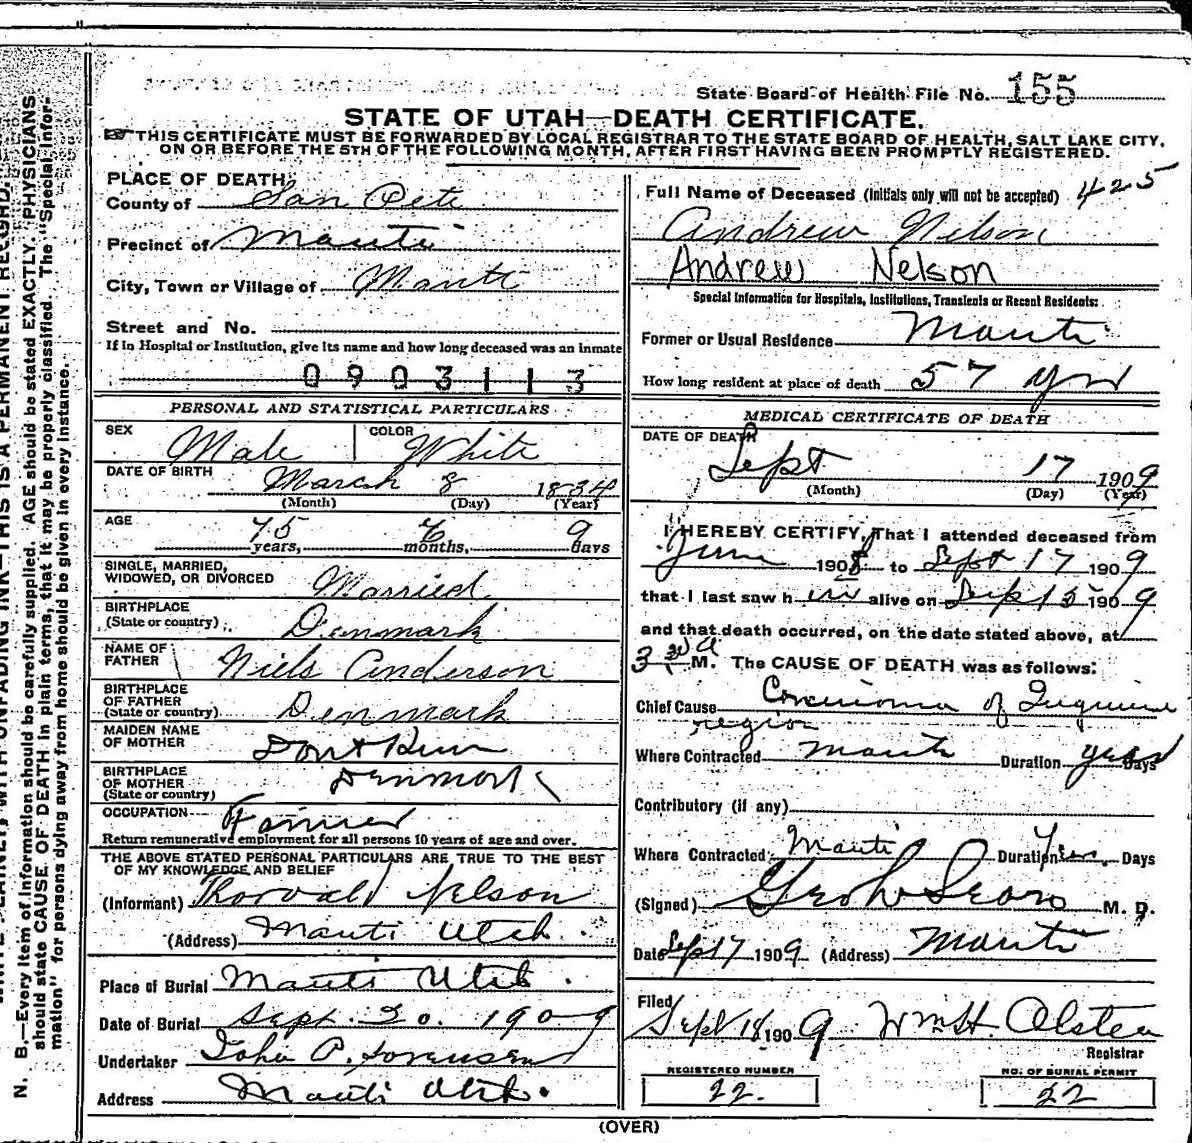 State Board of Health File No. 155
STATE OF UTAH—DEATH CERTIFICATE.
THIS CERTIFICATE MUST BE FORWARDED BY LOCAL REGISTRAR TO THE STATE BOARD OF HEALTH, SALT LAKE CITY,
ON OR BEFORE THE 5TH OF THE FOLLOWING MONTH, AFTER FIRST HAVING BEEN PROMPTLY REGISTERED.
PLACE OF DEATH:
County of San Pete
Precinct of Manti
City, Town or Village of Manti
Street and No.
If in Hospital or Institution, give its name and how long deceased was an inmate
0903113
PERSONAL AND STATISTICAL PARTICULARS
SEX Male COLOR White
DATE OF BIRTH March 8 1834
(Month) (Day) (Year)
AGE 75 years, 6 months, 9 days
SINGLE, MARRIED,
WIDOWED, OR DIVORCED Married
BIRTHPLACE
(State or country) Denmark
NAME OF
FATHER Niels Anderson
BIRTHPLACE
OF FATHER
(State or country) Denmark
MAIDEN NAME
OF MOTHER Dont Know
BIRTHPLACE
OF MOTHER
(State or country) Denmark
OCCUPATION Farmer
Return remunerative employment for all persons 10 years of age and over.
THE ABOVE STATED PERSONAL PARTICULARS ARE TRUE TO THE BEST
OF MY KNOWLEDGE AND BELIEF
(Informant) Thorvald Nelson
(Address) Manti Utah.
Place of Burial Manti Utah.
Date of Burial Sept. 20. 1909
Undertaker John P. Sorensen
Address Manti Utah.
Full Name of Deceased (Initials only will not be accepted) 425
Andrew Nelson
Andrew Nelson
Special Information for Hospitals, Institutions, Transients or Recent Residents:
Former or Usual Residence Manti
How long resident at place of death 57 yrs
MEDICAL CERTIFICATE OF DEATH
DATE OF DEATH
Sept 17 1909
(Month) (Day) (Year)
I HEREBY CERTIFY, That I attended deceased from
June 1908 to Sept 17 1909
that I last saw him alive on Sept 15 1909
and that death occurred, on the date stated above, at
3 A M. The CAUSE OF DEATH was as follows:
Chief Cause Carcinoma of Inguinal
region
Where Contracted Manti Duration years Days
Contributory (if any)
Where Contracted Manti Duration Days
(Signed) Geo W Sears M. D.
Date Sept 17 1909 (Address) Manti
Filed
Sept 18 1909 Wm H. Olsten
Registrar
REGISTERED NUMBER
22.
NO. OF BURIAL PERMIT
22
(OVER)
N. B.—Every item of information should be carefully supplied. AGE should be stated EXACTLY. PHYSICIANS
should state CAUSE OF DEATH in plain terms, that it may be properly classified. The "Special Infor-
mation" for persons dying away from home should be given in every instance.